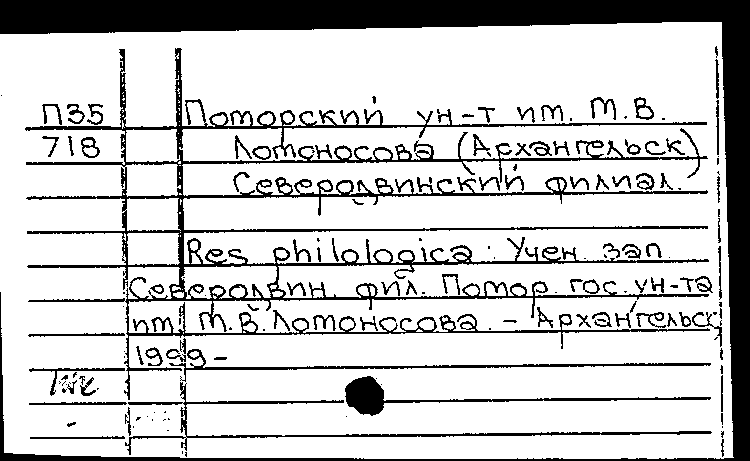 П35 Поморский ун-т им. М.В.
718 Ломоносова (Архангельск)
Северодвинский филиал.
Res philologica : Учен зап
Северодвин. фил. Помор. гос. ун-та
им. М.В. Ломоносова. - Архангельск,
1999-